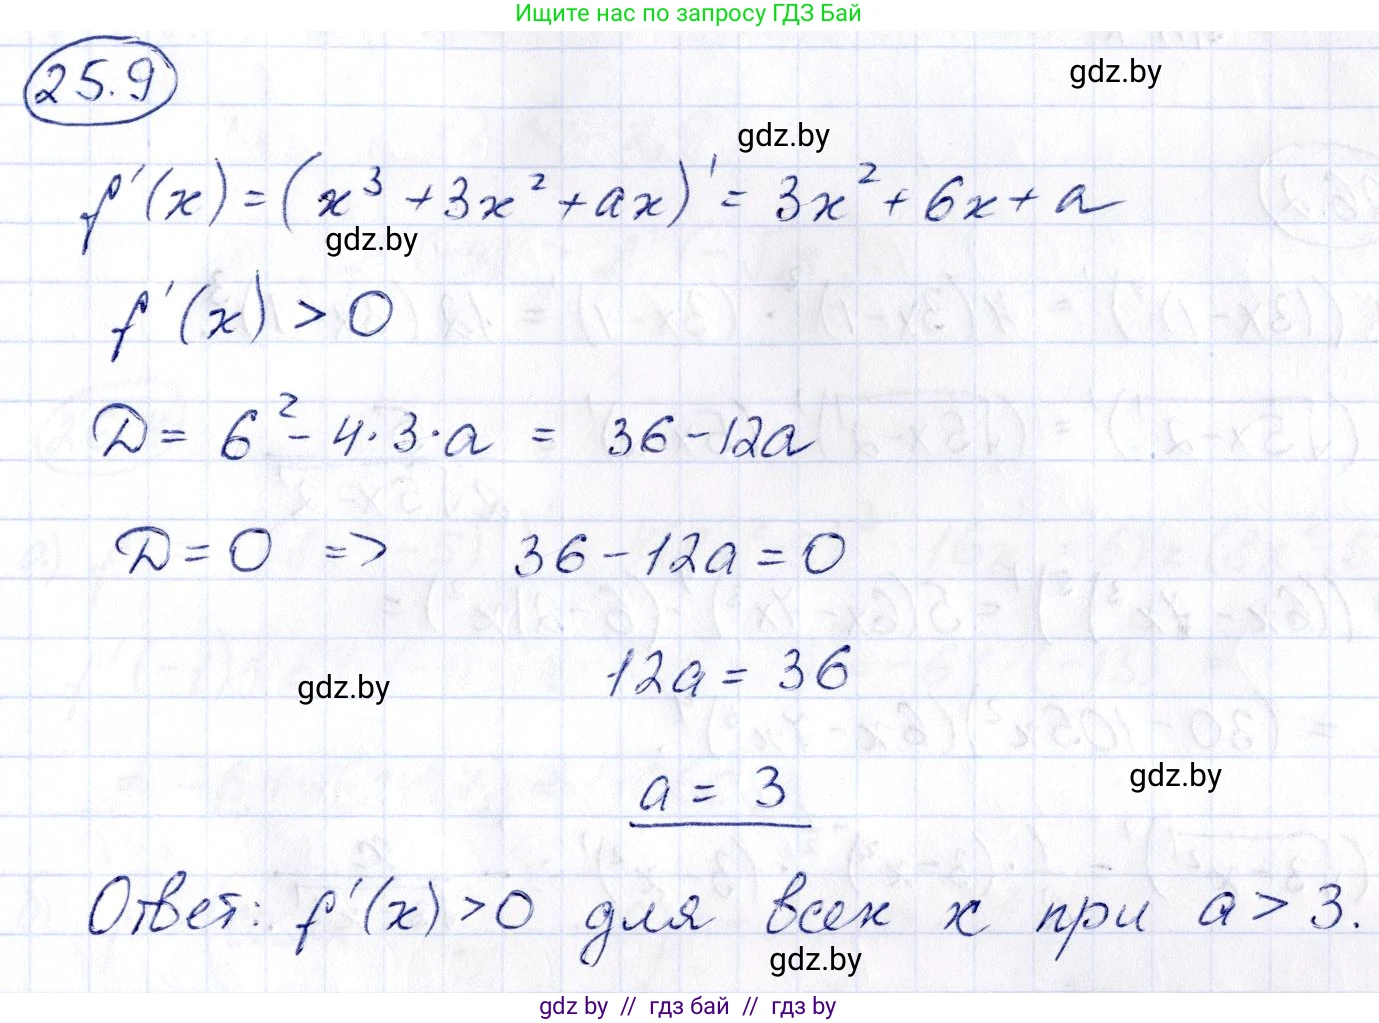 Ищите нас по запросу ГДЗ Бай
25.9
gdz.by
gdz.by
f'(x) = (x³ + 3x² + ax)' = 3x² + 6x + a
gdz.by
f'(x) > 0
D = 6² - 4·3·a = 36 - 12a
D = 0 => 36 - 12a = 0
12a = 36
gdz.by
a = 3
gdz.by
Ответ: f'(x) > 0 для всех x при a > 3.
gdz.by
gdz by // гдз бай // гдз by